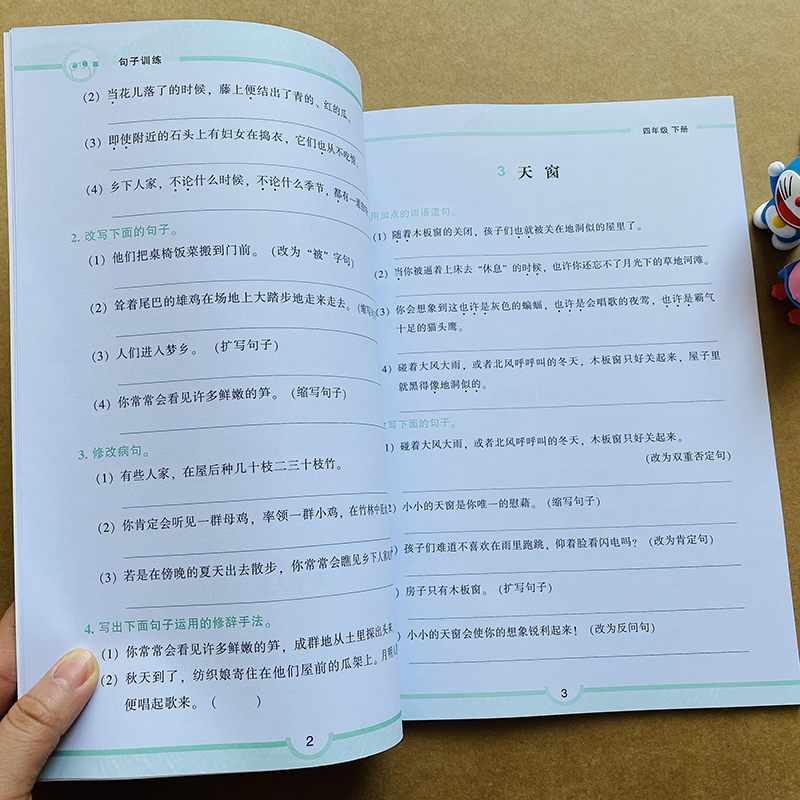 句子训练
(2) 当花儿落了的时候，藤上便结出了青的、红的瓜，
(3) 即使附近的石头上有妇女在捣衣，它们也从不吃惊。
(4) 乡下人家，不论什么时候，不论什么季节，都有一道
2. 改写下面的句子。
(1) 他们把桌椅饭菜搬到门前。（改为“被”字句）
(2) 耸着尾巴的雄鸡在场地上大踏步地走来走去。（缩写
(3) 人们进入梦乡。（扩写句子）
(4) 你常常会看见许多鲜嫩的笋。（缩写句子）
3. 修改病句。
(1) 有些人家，在屋后种几十枝二三十枝竹。
(2) 你肯定会听见一群母鸡，率领一群小鸡，在竹林中觅
(3) 若是在傍晚的夏天出去散步，你常常会瞧见乡下人家
4. 写出下面句子运用的修辞手法。
(1) 你常常会看见许多鲜嫩的笋，成群地从土里探出头来。
(2) 秋天到了，纺织娘寄住在他们屋前的瓜架上。月明人
便唱起歌来。（ ）
2
四年级 下册
3 天窗
用加点的词语造句。
(1) 随着木板窗的关闭，孩子们也就被关在地洞似的屋里了。
(2) 当你被逼着上床去“休息”的时候，也许你还忘不了月光下的草地河滩。
(3) 你会想象到这也许是灰色的蝙蝠，也许是会唱歌的夜莺，也许是霸气
十足的猫头鹰。
4) 碰着大风大雨，或者北风呼呼叫的冬天，木板窗只好关起来，屋子里
就黑得像地洞似的。
改写下面的句子。
1) 碰着大风大雨，或者北风呼呼叫的冬天，木板窗只好关起来。
（改为双重否定句）
2) 小小的天窗是你唯一的慰藉。（缩写句子）
孩子们难道不喜欢在雨里跑跳，仰着脸看闪电吗？（改为肯定句）
房子只有木板窗。（扩写句子）
小小的天窗会使你的想象锐利起来！（改为反问句）
3